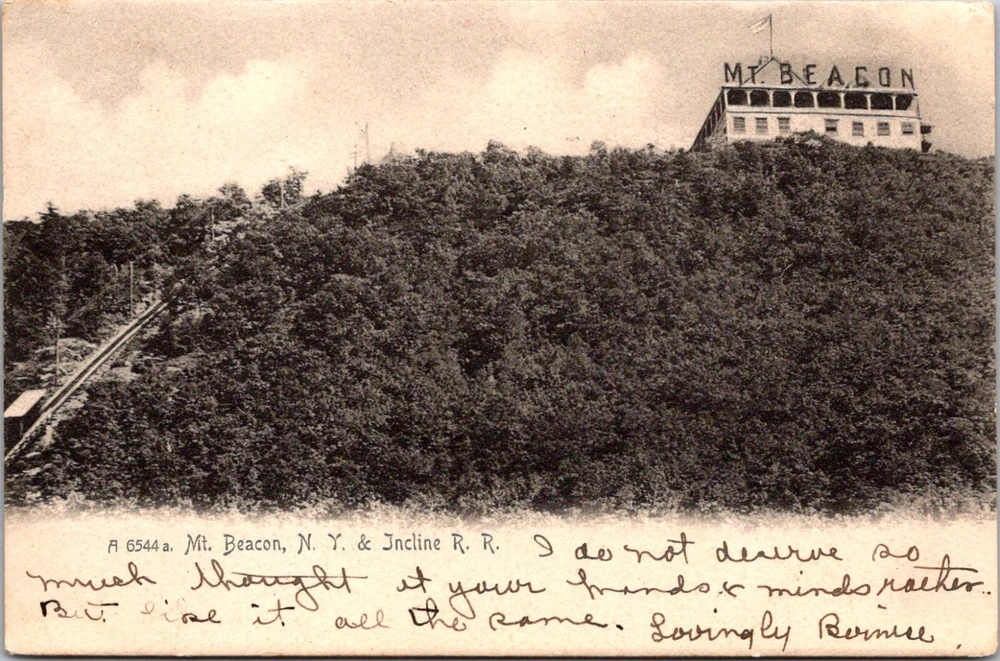 MT. BEACON
A 6544 a. Mt. Beacon, N. Y. & Incline R. R. I do not deserve so
much thought at your hands & minds rather..
But like it all the same. Lovingly Bernise.